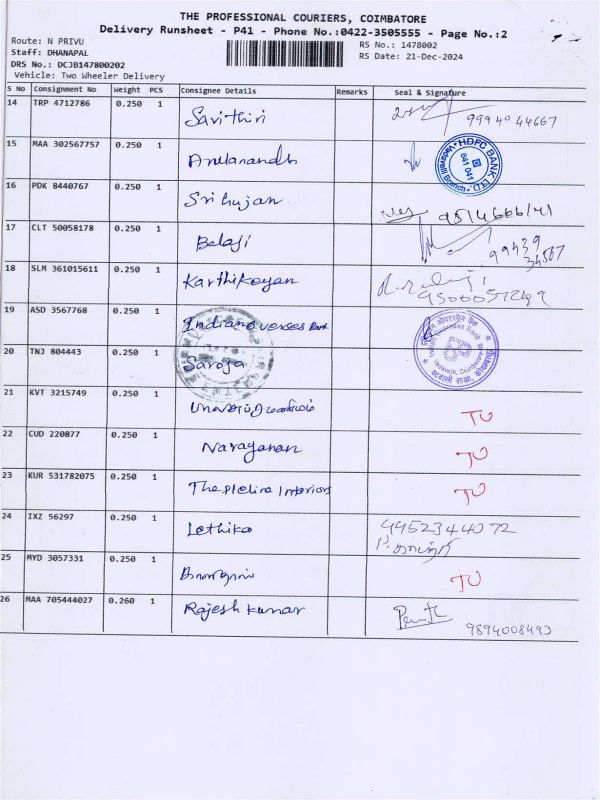 THE PROFESSIONAL COURIERS, COIMBATORE
Delivery Runsheet - P41 - Phone No.:0422-3505555 - Page No.:2
Route: N PRIVU RS No.: 1478002
Staff: DHANAPAL RS Date: 21-Dec-2024
DRS No.: DCJB147800202
Vehicle: Two Wheeler Delivery
S No Consignment No Weight PCS Consignee Details Remarks Seal & Signature
14 TRP 4712786 0.250 1 Savithiri 9994044667
15 MAA 302567757 0.250 1 Arulanandh HDFC BANK LTD 641 041 Vadavalli Branch
16 PDK 8440767 0.250 1 Srihujan
17 CLT 50058178 0.250 1 Balaji 99439 34567
18 SLM 361015611 0.250 1 Karthikeyan
19 ASD 3567768 0.250 1 Indian overses Bank Indian Overseas Bank Vadavalli, Coimbatore
20 TNJ 804443 0.250 1 Saroja
21 KVT 3215749 0.250 1 TU
22 CUD 220877 0.250 1 Narayanan TU
23 KUR 531782075 0.250 1 Interiors TU
24 IXZ 56297 0.250 1 Lethika 9952344072
25 MYD 3057331 0.250 1 TU
26 MAA 705444027 0.260 1 Rajesh kumar 9894008493